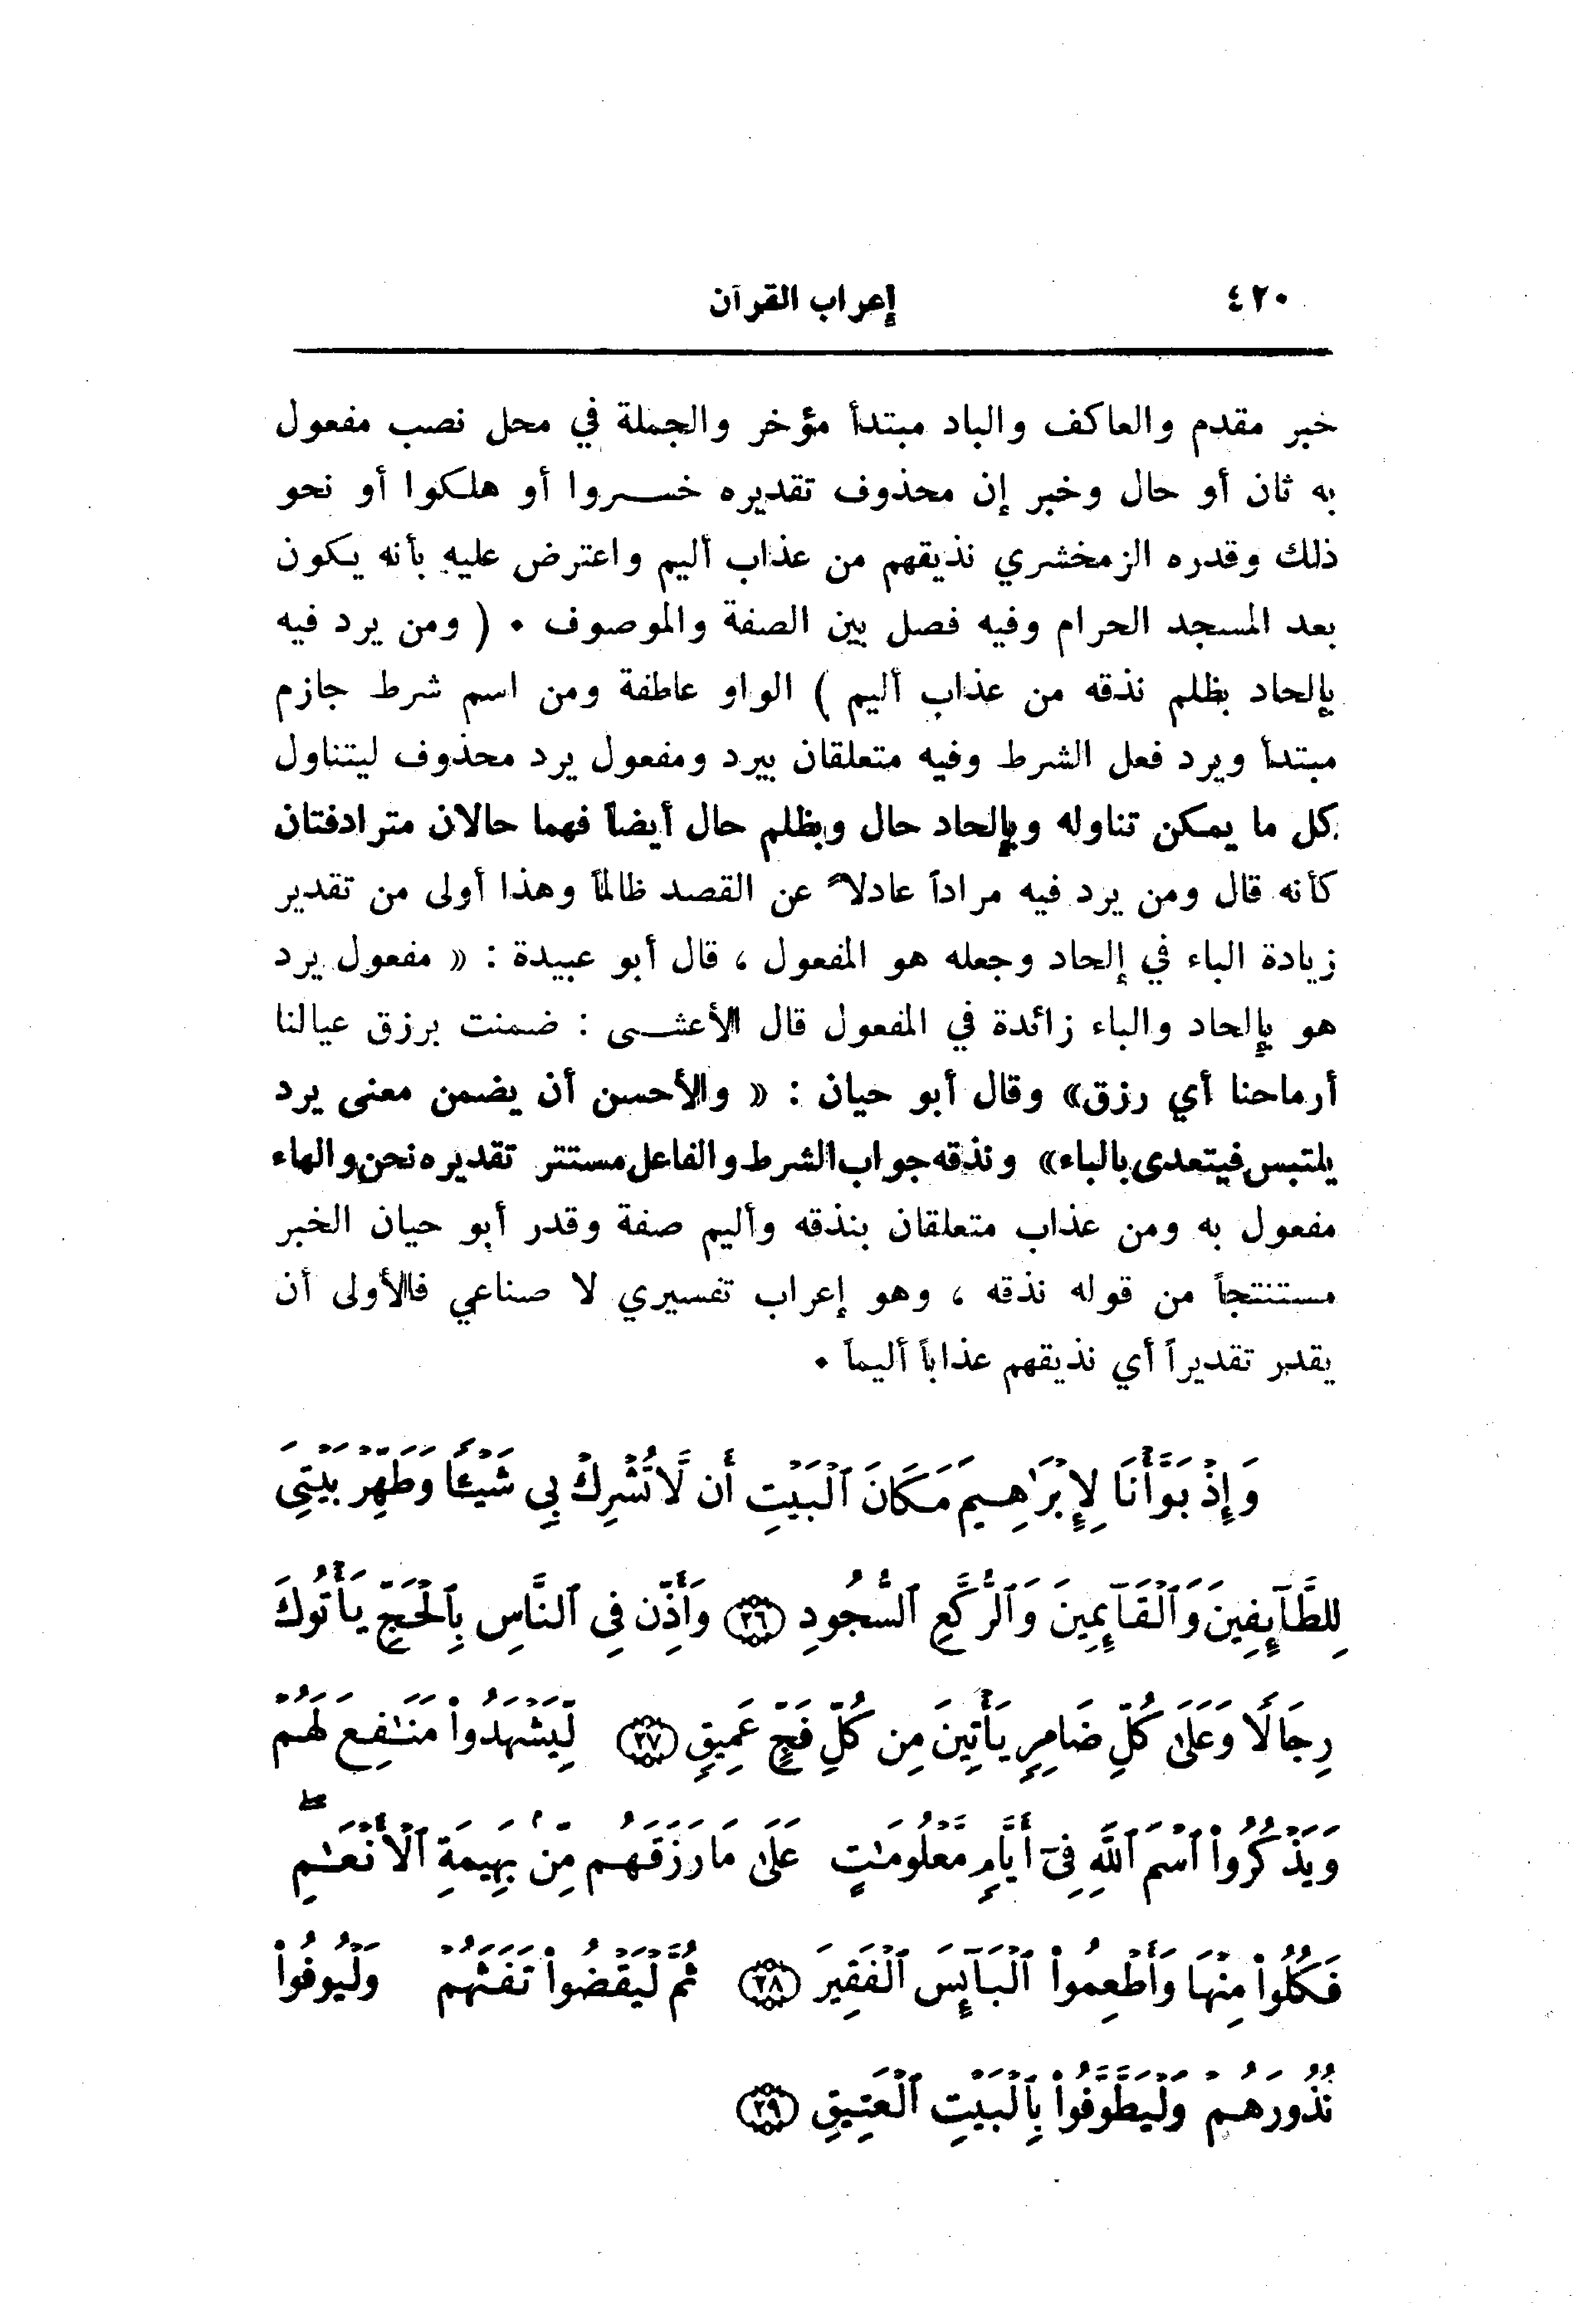 ٤٢٠ إعراب القرآن
خبر مقدم والعاكف والباد مبتدأ مؤخر والجملة في محل نصب مفعول
به ثان أو حال وخبر إن محذوف تقديره خسروا أو هلكوا أو نحو
ذلك وقدره الزمخشري نذيقهم من عذاب أليم واعترض عليه بأنه يكون
بعد المسجد الحرام وفيه فصل بين الصفة والموصوف . ( ومن يرد فيه
بإلحاد بظلم نذقه من عذاب أليم ) الواو عاطفة ومن اسم شرط جازم
مبتدأ ويرد فعل الشرط وفيه متعلقان بيرد ومفعول يرد محذوف ليتناول
كل ما يمكن تناوله وبإلحاد حال وبظلم حال أيضاً فهما حالان مترادفتان
كأنه قال ومن يرد فيه مراداً عادلاً عن القصد ظالماً وهذا أولى من تقدير
زيادة الباء في إلحاد وجعله هو المفعول ، قال أبو عبيدة : « مفعول يرد
هو بإلحاد والباء زائدة في المفعول قال الأعشى : ضمنت برزق عيالنا
أرماحنا أي رزق» وقال أبو حيان : « والأحسن أن يضمن معنى يرد
يلتبس فيتعدى بالباء» ونذقه جواب الشرط والفاعل مستتر تقديره نحن والهاء
مفعول به ومن عذاب متعلقان بنذقه وأليم صفة وقدر أبو حيان الخبر
مستنتجاً من قوله نذقه ، وهو إعراب تفسيري لا صناعي فالأولى أن
يقدر تقديراً أي نذيقهم عذاباً أليماً .
وَإِذْ بَوَّأْنَا لِإِبْرَٰهِيمَ مَكَانَ ٱلْبَيْتِ أَن لَّا تُشْرِكْ بِي شَيْـًٔا وَطَهِّرْ بَيْتِيَ
لِلطَّآئِفِينَ وَٱلْقَآئِمِينَ وَٱلرُّكَّعِ ٱلسُّجُودِ ٢٦ وَأَذِّن فِي ٱلنَّاسِ بِٱلْحَجِّ يَأْتُوكَ
رِجَالًا وَعَلَىٰ كُلِّ ضَامِرٍ يَأْتِينَ مِن كُلِّ فَجٍّ عَمِيقٍ ٢٧ لِّيَشْهَدُوا۟ مَنَٰفِعَ لَهُمْ
وَيَذْكُرُوا۟ ٱسْمَ ٱللَّهِ فِىٓ أَيَّامٍ مَّعْلُومَٰتٍ عَلَىٰ مَا رَزَقَهُم مِّنۢ بَهِيمَةِ ٱلْأَنْعَٰمِ ۖ
فَكُلُوا۟ مِنْهَا وَأَطْعِمُوا۟ ٱلْبَآئِسَ ٱلْفَقِيرَ ٢٨ ثُمَّ لْيَقْضُوا۟ تَفَثَهُمْ وَلْيُوفُوا۟
نُذُورَهُمْ وَلْيَطَّوَّفُوا۟ بِٱلْبَيْتِ ٱلْعَتِيقِ ٢٩